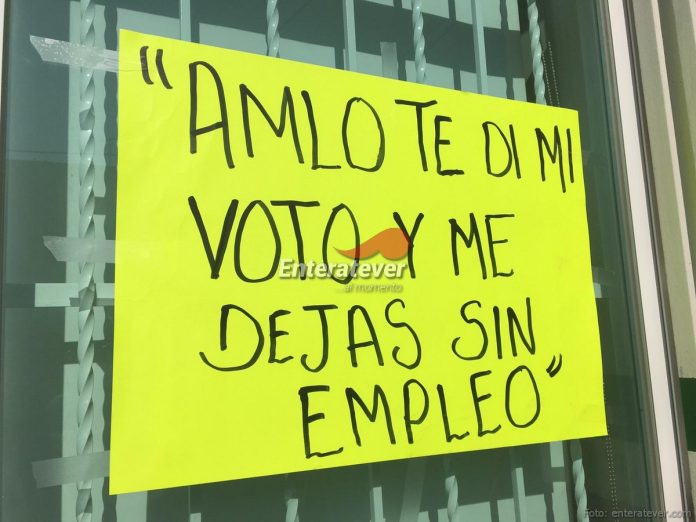 "AMLO TE DI MI
VOTO Y ME
DEJAS SIN
EMPLEO"
Enteratever
...al momento
Foto: enteratever.com